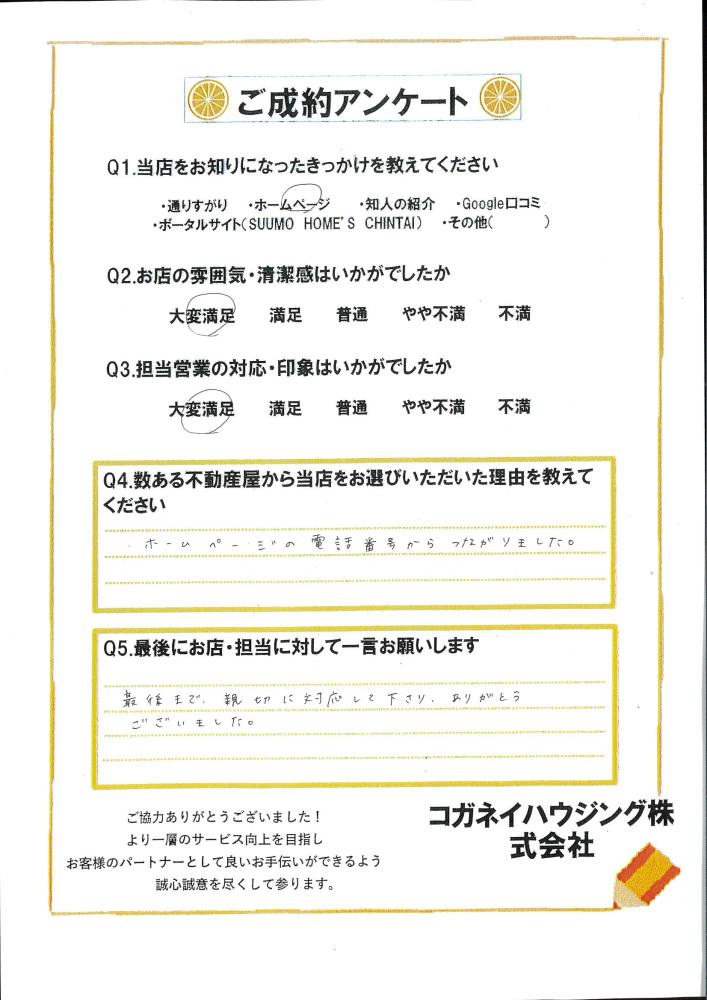 ご成約アンケート
Q1.当店をお知りになったきっかけを教えてください
・通りすがり ・ホームページ ・知人の紹介 ・Google口コミ
・ポータルサイト(SUUMO HOME'S CHINTAI) ・その他( )
Q2.お店の雰囲気・清潔感はいかがでしたか
大変満足 満足 普通 やや不満 不満
Q3.担当営業の対応・印象はいかがでしたか
大変満足 満足 普通 やや不満 不満
Q4.数ある不動産屋から当店をお選びいただいた理由を教えて
ください
・ホームページの電話番号からつながりました。
Q5.最後にお店・担当に対して一言お願いします
最後まで、親切に対応して下さり、ありがとう
ございました。
ご協力ありがとうございました！
より一層のサービス向上を目指し
お客様のパートナーとして良いお手伝いができるよう
誠心誠意を尽くして参ります。
コガネイハウジング株
式会社